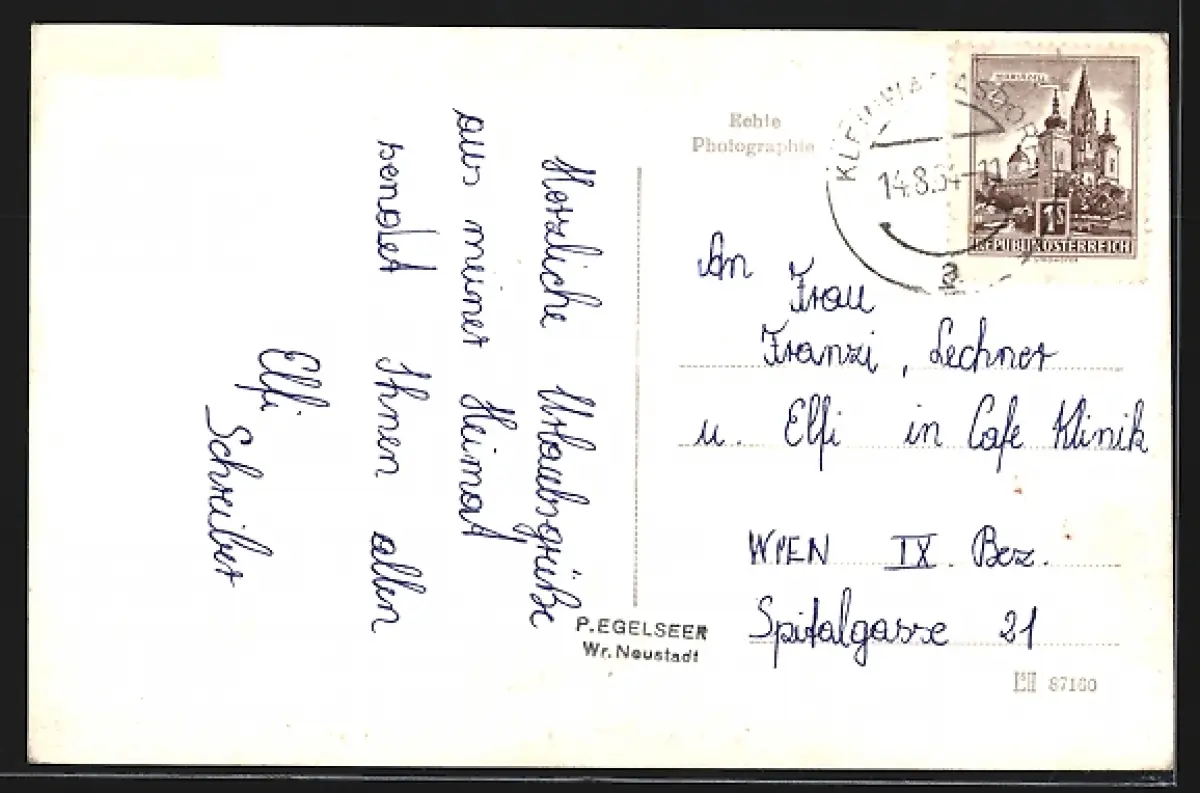 Herzliche Urlaubsgrüße
aus meiner Heimat
sendet Ihnen allen
Elfi
Schreiber
Echte
Photographie
14.8.64-11
a
MARIAZELL
1S
REPUBLIK ÖSTERREICH
An
Frau
Franzi, Lechner
u. Elfi in Cafe Klinik
WIEN IX. Bez.
Spitalgasse 21
P.EGELSEER
Wr.Neustadt
87160